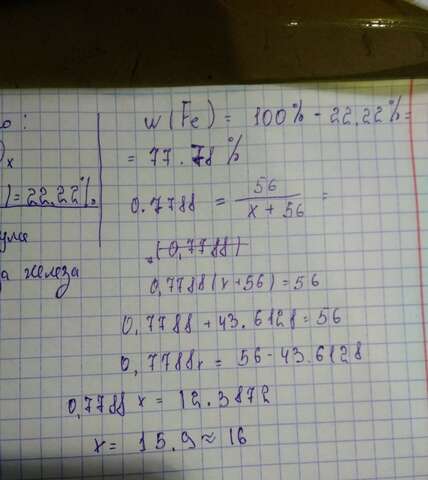 о:
w(Fe) = 100% - 22.22% =
x
= 77.78%
) = 22.22%.
0.7788 = 56 / x + 56 =
(0,7788)
а железа
0,7788(x+56) = 56
0,7788 + 43.6128 = 56
0,7788x = 56 - 43.6128
0,7788 x = 12.3872
x = 15.9 ≈ 16